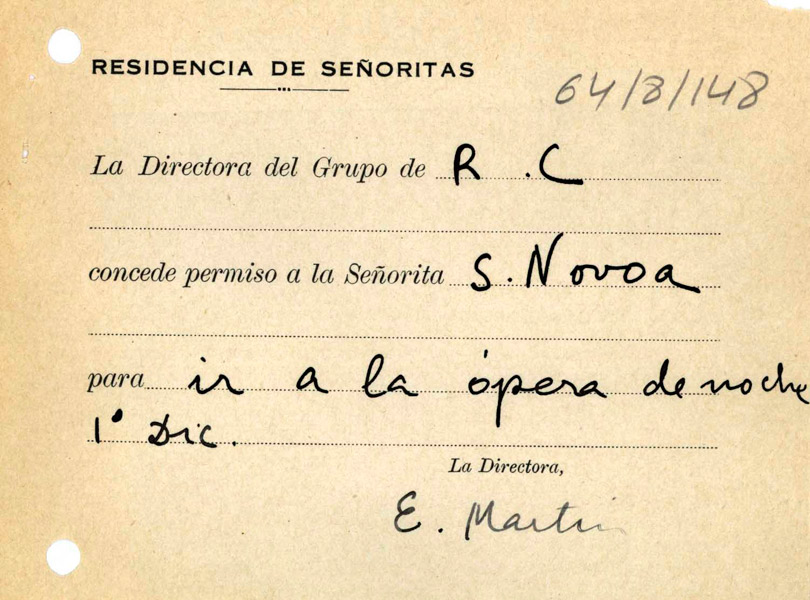 RESIDENCIA DE SEÑORITAS
64/8/148
La Directora del Grupo de R . C
concede permiso a la Señorita S. Novoa
para ir a la ópera de noche
1º Dic.
La Directora,
E. Martin